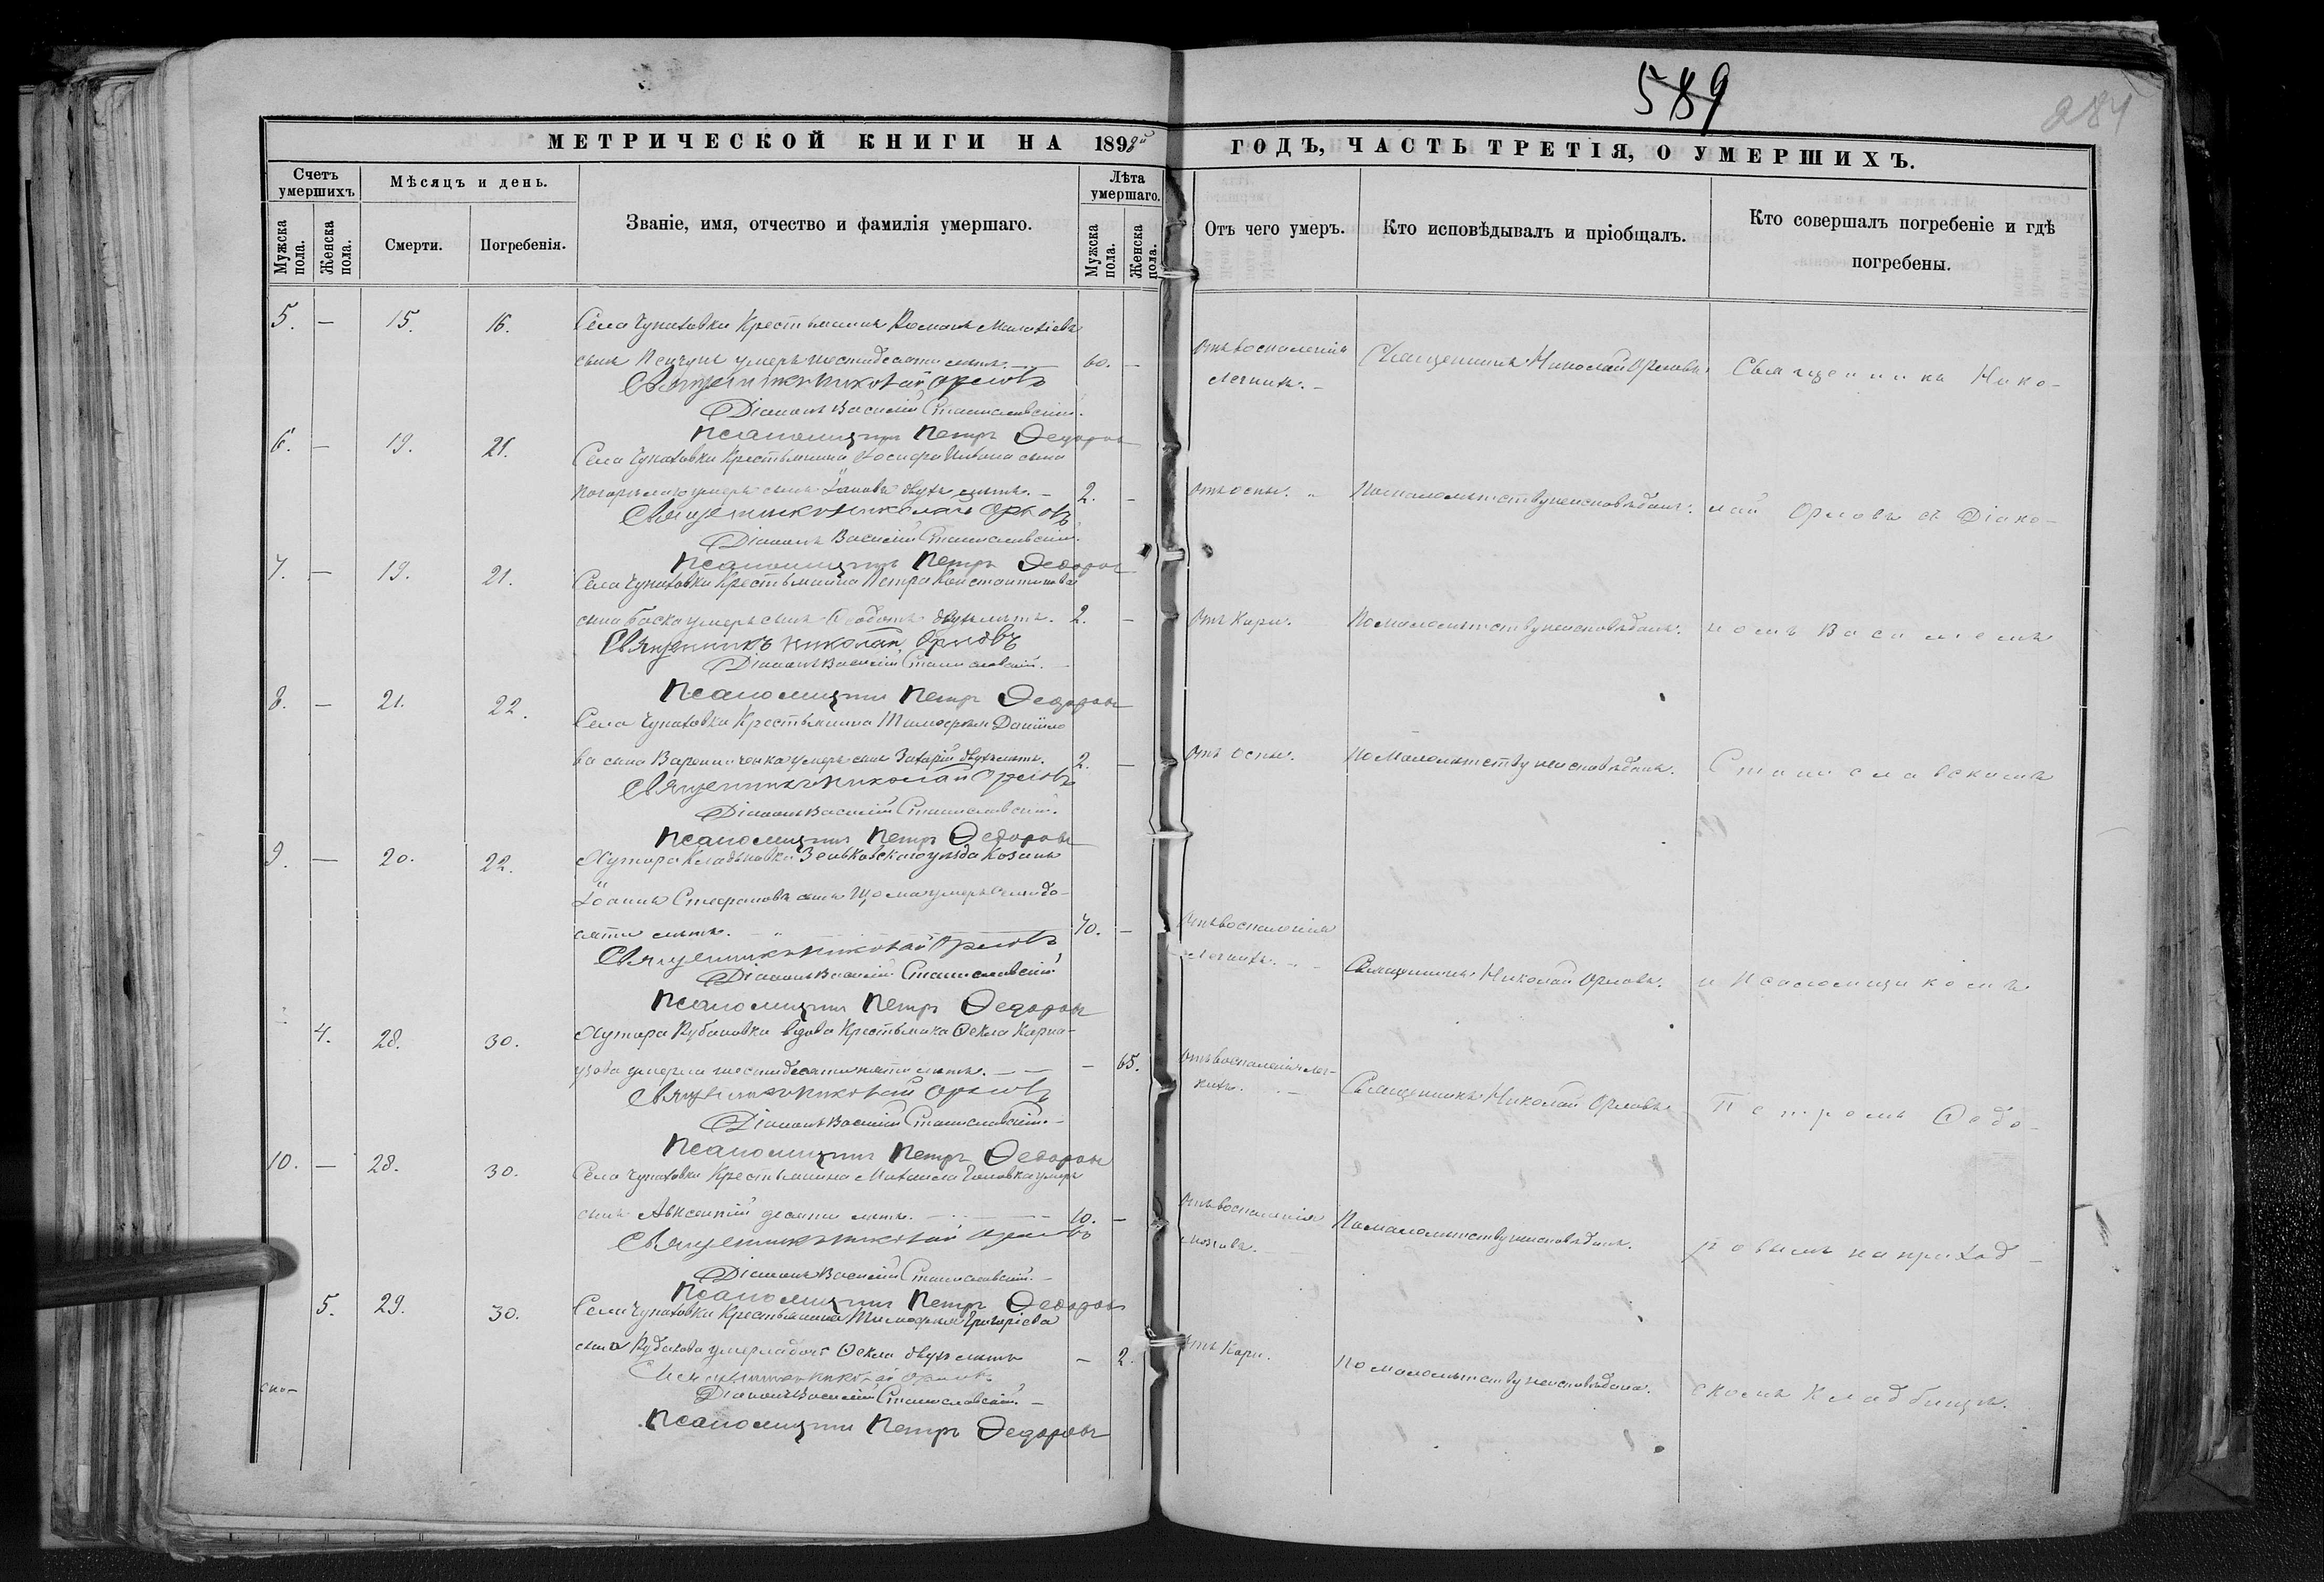 589
284
МЕТРИЧЕСКОЙ КНИГИ НА 1898й ГОДЪ, ЧАСТЬ ТРЕТІЯ, О УМЕРШИХЪ.
Счетъ умершихъ
Мѣсяцъ и день.
Званіе, имя, отчество и фамилія умершаго.
Лѣта умершаго.
Отъ чего умеръ.
Кто исповѣдывалъ и пріобщалъ.
Кто совершалъ погребеніе и гдѣ погребены.
Мужска пола.
Женска пола.
Смерти.
Погребенія.
Мужска пола.
Женска пола.
5. — 15. 16.
Села Чупаховки Крестьянинъ Романъ
сынъ умеръ шестидесяти лѣтъ. — 60. —
Отъ воспаленія
легкихъ. —
Священникъ Николай Орловъ
Священникъ Нико-
Священникъ Николай Орловъ
Діаконъ Василій Станиславскій.
Псаломщикъ Петръ Федоровъ
6. — 19. 21.
Села Чупаховки Крестьянина Іосифа сына
умеръ сынъ Іаковъ двухъ лѣтъ. — 2. —
Отъ оспы.
По малолѣтству неисповѣданъ.
лай Орловъ съ Діако-
Священникъ Николай Орловъ
Діаконъ Василій Станиславскій.
Псаломщикъ Петръ Федоровъ
7. — 19. 21.
Села Чупаховки Крестьянина Петра Константинова
сына Баска умеръ сынъ двухъ лѣтъ. 2. —
Отъ Кори.
По малолѣтству неисповѣданъ.
номъ Василіемъ
Священникъ Николай Орловъ
Діаконъ Василій Станиславскій.
Псаломщикъ Петръ Федоровъ
8. — 21. 22.
Села Чупаховки Крестьянина Тимофея Данило
ва сына умеръ сынъ Захарій двухъ лѣтъ. 2. —
Отъ оспы.
По малолѣтству неисповѣданъ.
Станиславскимъ
Священникъ Николай Орловъ
Діаконъ Василій Станиславскій.
Псаломщикъ Петръ Федоровъ
9. — 20. 22.
Хутора Зеньковскаго уѣзда Козакъ
Іоаннъ Стефановъ сынъ умеръ семиде-
сяти лѣтъ. — 70. —
Отъ воспаленія
легкихъ. —
Священникъ Николай Орловъ.
и Псаломщикомъ
Священникъ Николай Орловъ
Діаконъ Василій Станиславскій
Псаломщикъ Петръ Федоровъ
4. 28. 30.
Хутора вдова Крестьянка Ѳекла
умерла шестидесяти пяти лѣтъ. — — 65.
Отъ воспаленія лег-
кихъ. —
Священникъ Николай Орловъ
Петромъ Ѳедо-
Священникъ Николай Орловъ
Діаконъ Василій Станиславскій. —
Псаломщикъ Петръ Федоровъ
10. — 28. 30.
Села Чупаховки Крестьянина Михаила Головка умеръ
сынъ Авксентій десяти лѣтъ. — 10. —
Отъ воспаленія
мозга. —
По малолѣтству неисповѣданъ.
ровымъ на приход-
Священникъ Николай Орловъ
Діаконъ Василій Станиславскій. —
Псаломщикъ Петръ Федоровъ
5. 29. 30.
Села Чупаховки Крестьянина Тимофея Григоріева
сына умерла дочь Ѳекла двухъ лѣтъ — 2.
Отъ Кори.
По малолѣтству неисповѣдана.
скомъ Кладбищѣ.
Священникъ Николай Орловъ
Діаконъ Василій Станиславскій. —
Псаломщикъ Петръ Федоровъ